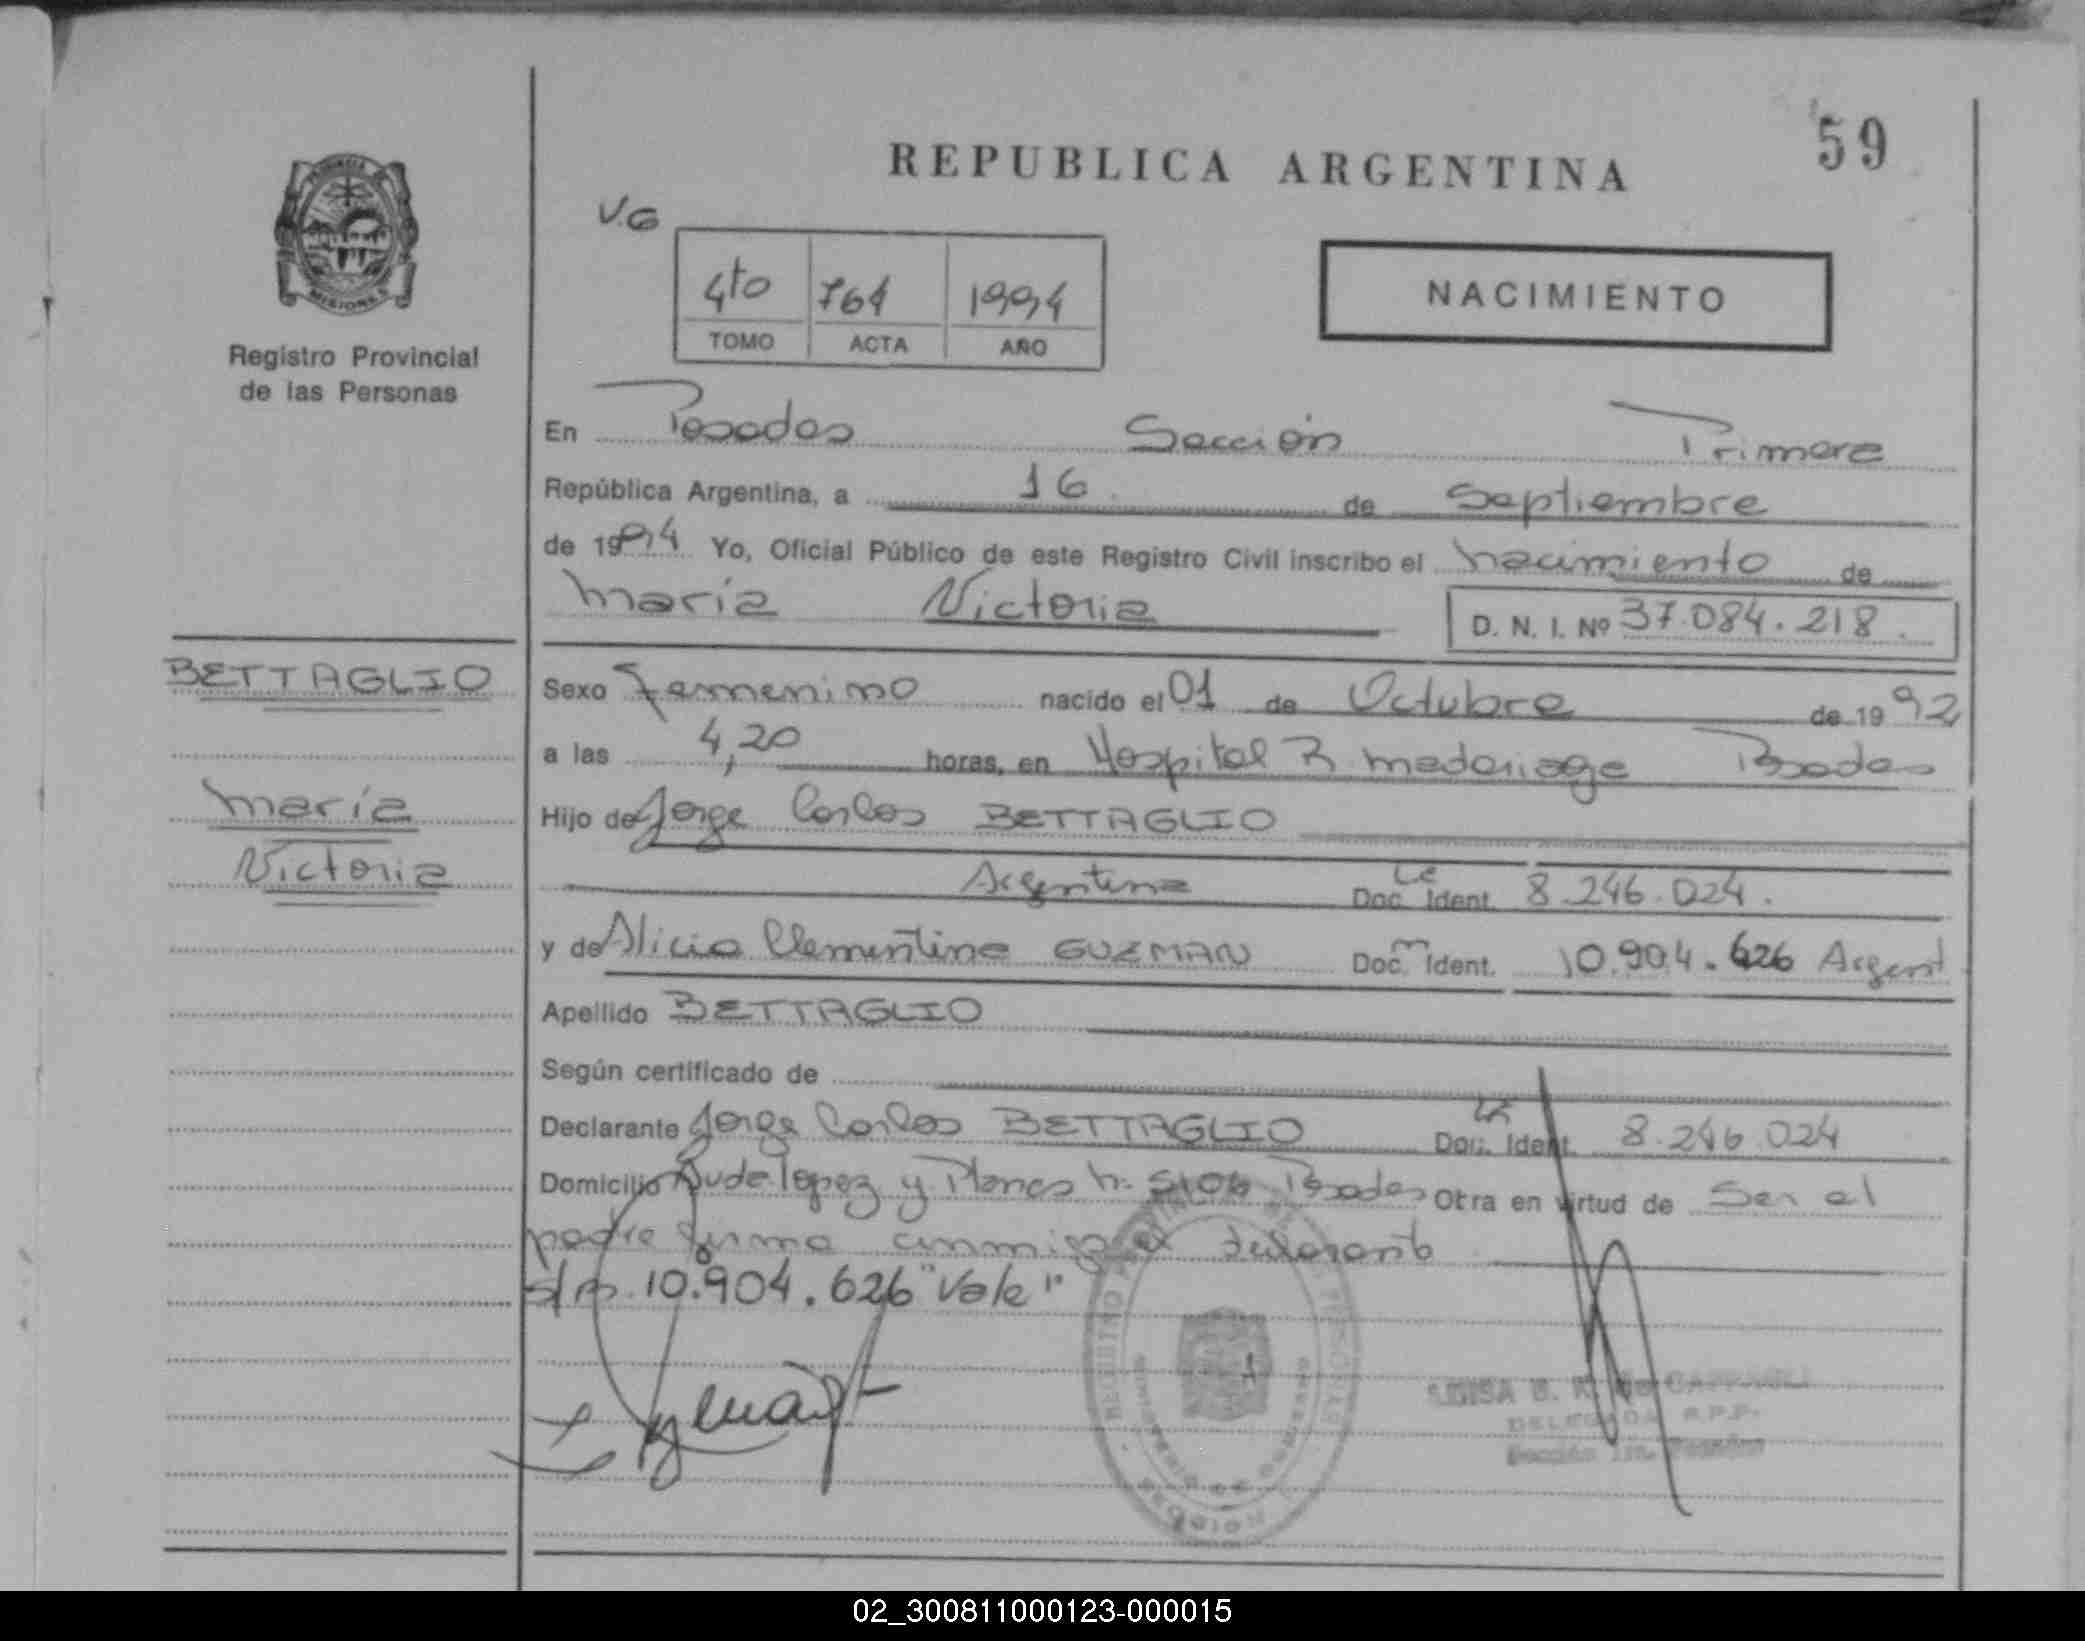 59
REPUBLICA ARGENTINA
PROVINCIA DE
MISIONES
Registro Provincial
de las Personas
V.G
4to 764 1994
TOMO ACTA AÑO
NACIMIENTO
En Posadas Sección Primera
República Argentina, a 16 de Septiembre
de 1994 Yo, Oficial Público de este Registro Civil inscribo el nacimiento de
María Victoria D. N. I. Nº 37.084.218.
BETTAGLIO
María
Victoria
Sexo Femenino nacido el 01 de Octubre de 1992
a las 4,20 horas, en Hospital R madariaga Posadas
Hijo de Jorge Carlos BETTAGLIO
Argentina Le Doc. Ident. 8.246.024.
y de Alicia Clementina GUZMAN Doc. m Ident. 10.904.626 Argent
Apellido BETTAGLIO
Según certificado de
Declarante Jorge Carlos BETTAGLIO Doc. Ident. 8.246.024
Domicilio Avda Lopez y Planes n. 5106 Posadas Otra en virtud de Ser el
padre firma conmigo el
10.904.626 "Vale"
REGISTRO PROVINCIAL DE LAS PERSONAS
MINISTERIO DE GOBIERNO
LUISA
DELEGADA R.P.P.
Sección 1ra. Posadas
02_300811000123-000015